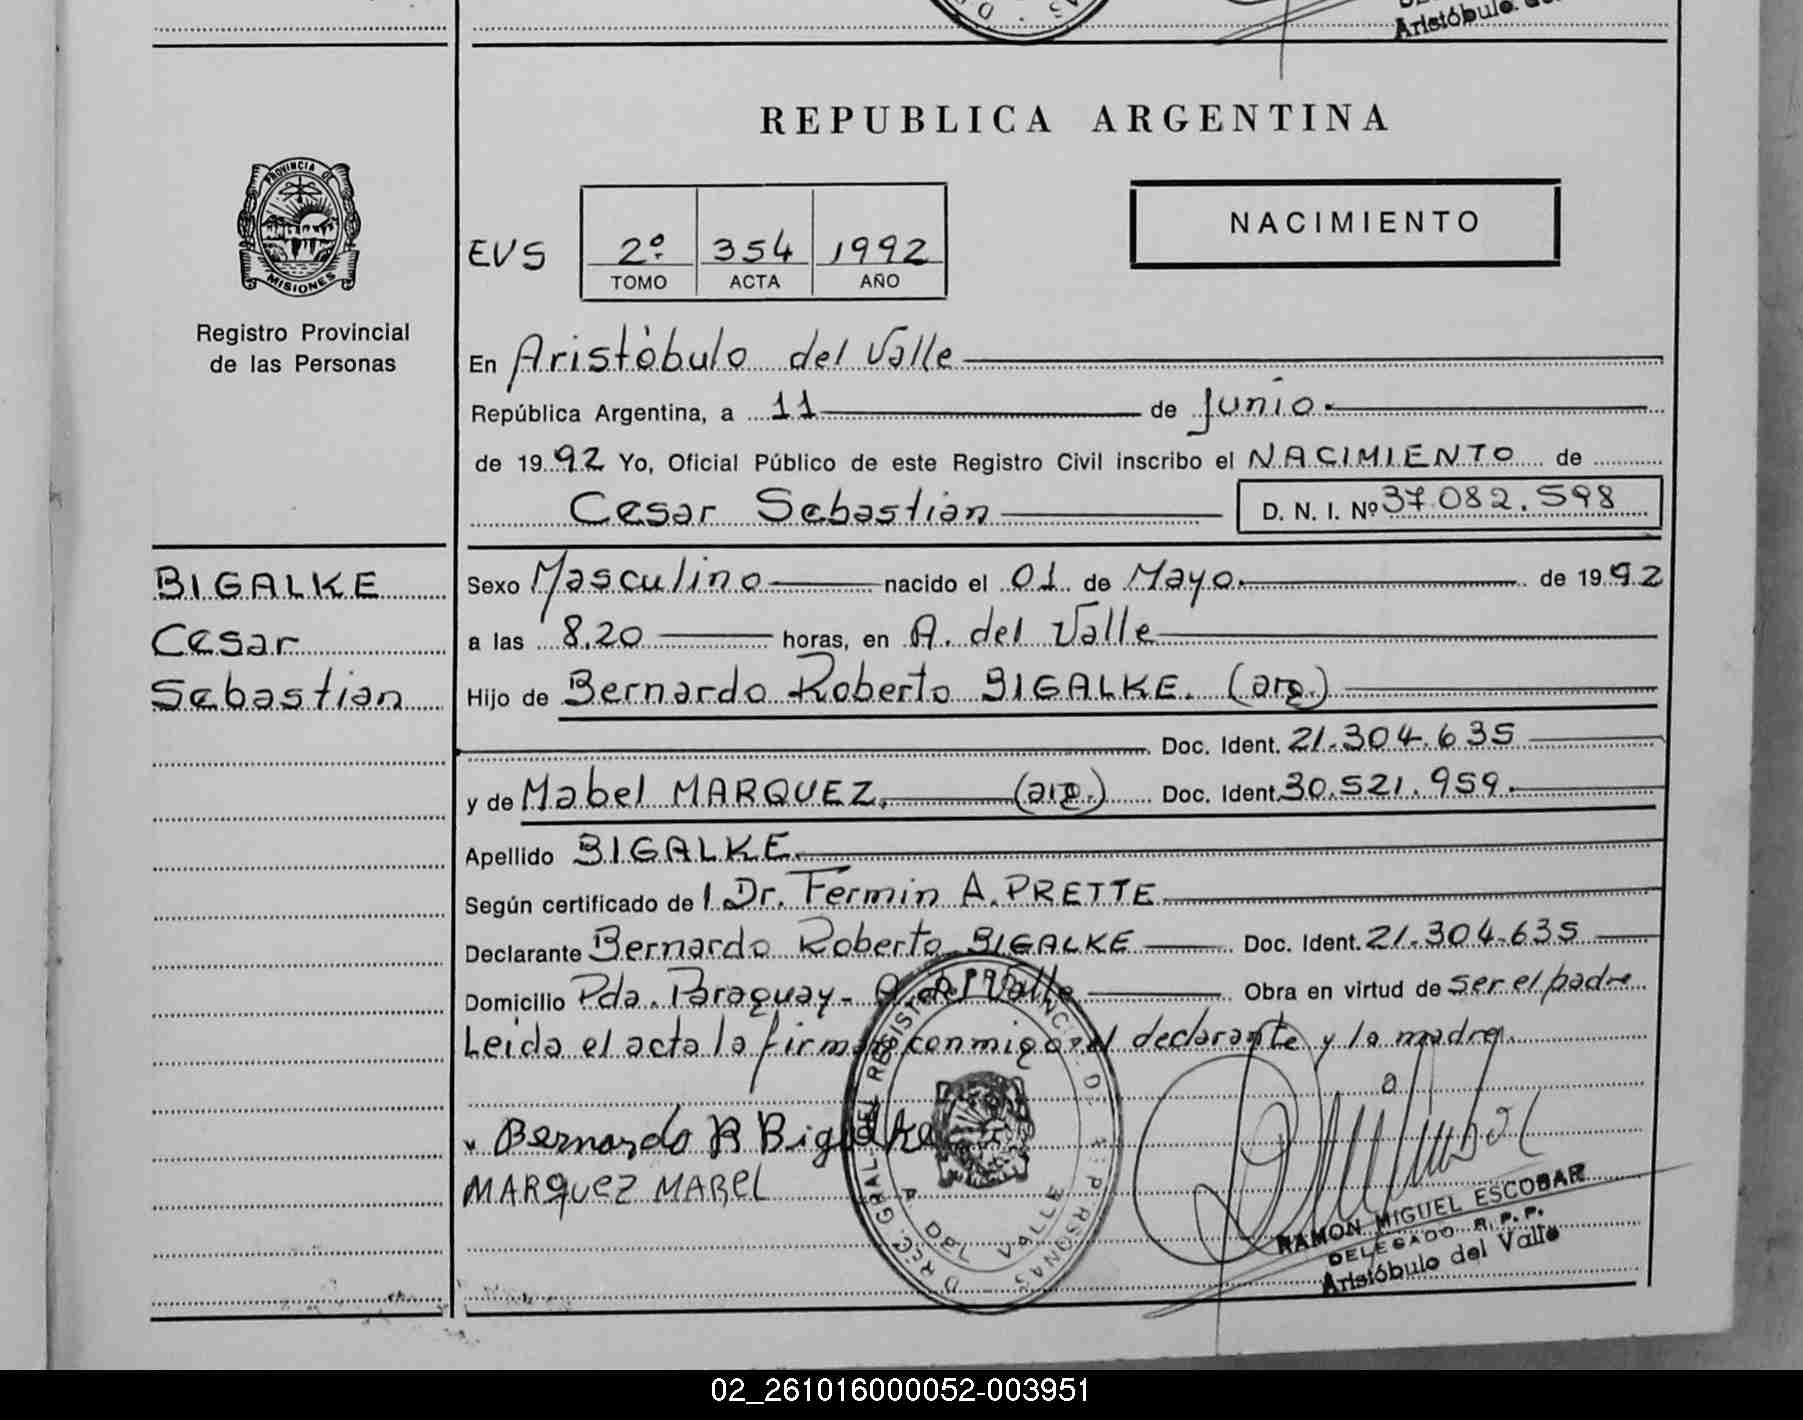 Aristóbulo de
REPUBLICA ARGENTINA
PROVINCIA DE
MISIONES
Registro Provincial
de las Personas
NACIMIENTO
EVS 2º 354 1992
TOMO ACTA AÑO
En Aristóbulo del Valle
República Argentina, a 11 de Junio
de 1992 Yo, Oficial Público de este Registro Civil inscribo el NACIMIENTO de
Cesar Sebastian D. N. I. Nº 37.082.598
BIGALKE
Cesar
Sebastian
Sexo Masculino nacido el 01 de Mayo de 1992
a las 8,20 horas, en A. del Valle
Hijo de Bernardo Roberto BIGALKE. (arg.)
Doc. Ident. 21.304.635
y de Mabel MARQUEZ. (arg.) Doc. Ident. 30.521.959.
Apellido BIGALKE
Según certificado de l Dr. Fermin A. PRETTE
Declarante Bernardo Roberto BIGALKE Doc. Ident. 21.304.635
Domicilio Pda. Paraguay - A. del Valle Obra en virtud de ser el padre
Leida el acta la firman conmigo el declarante y la madre.
Bernardo R Bigalke
MARQUEZ MABEL
A. DEL VALLE
RAMON MIGUEL ESCOBAR
DELEGADO R. P. P.
Aristóbulo del Valle
02_261016000052-003951